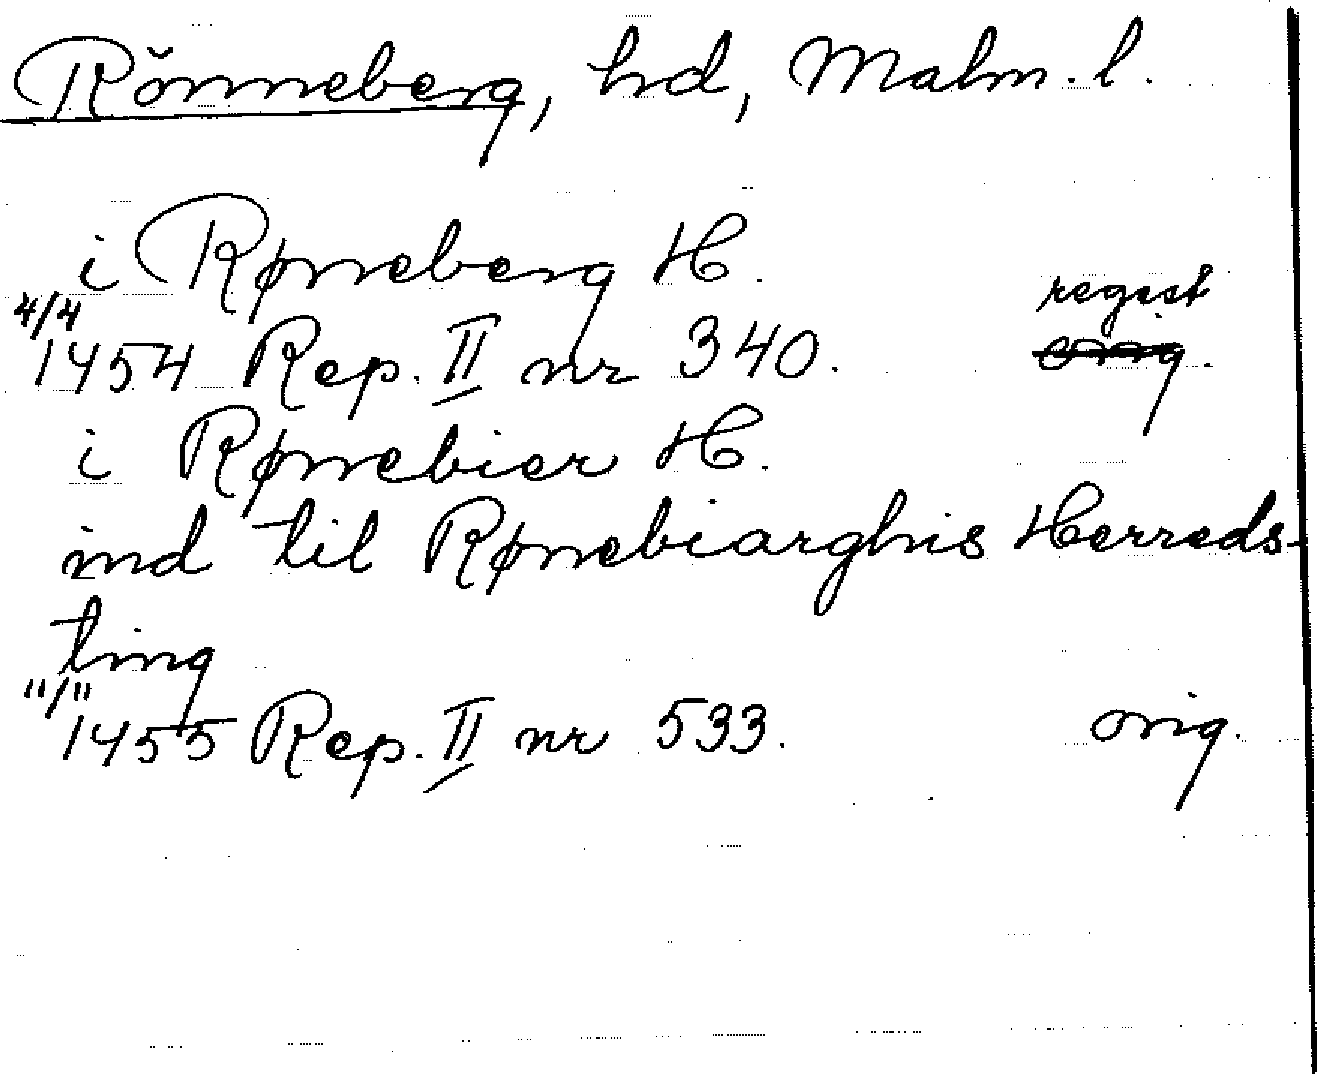 Rönneberg, hd, Malm. l.
i Rønneberg H.
4/4 regest
1454 Rep. II nr 340. orig.
i Rønnebier H.
ind til Rønebiarghis Herreds-
ting
11/11
1455 Rep. II nr 533. orig.